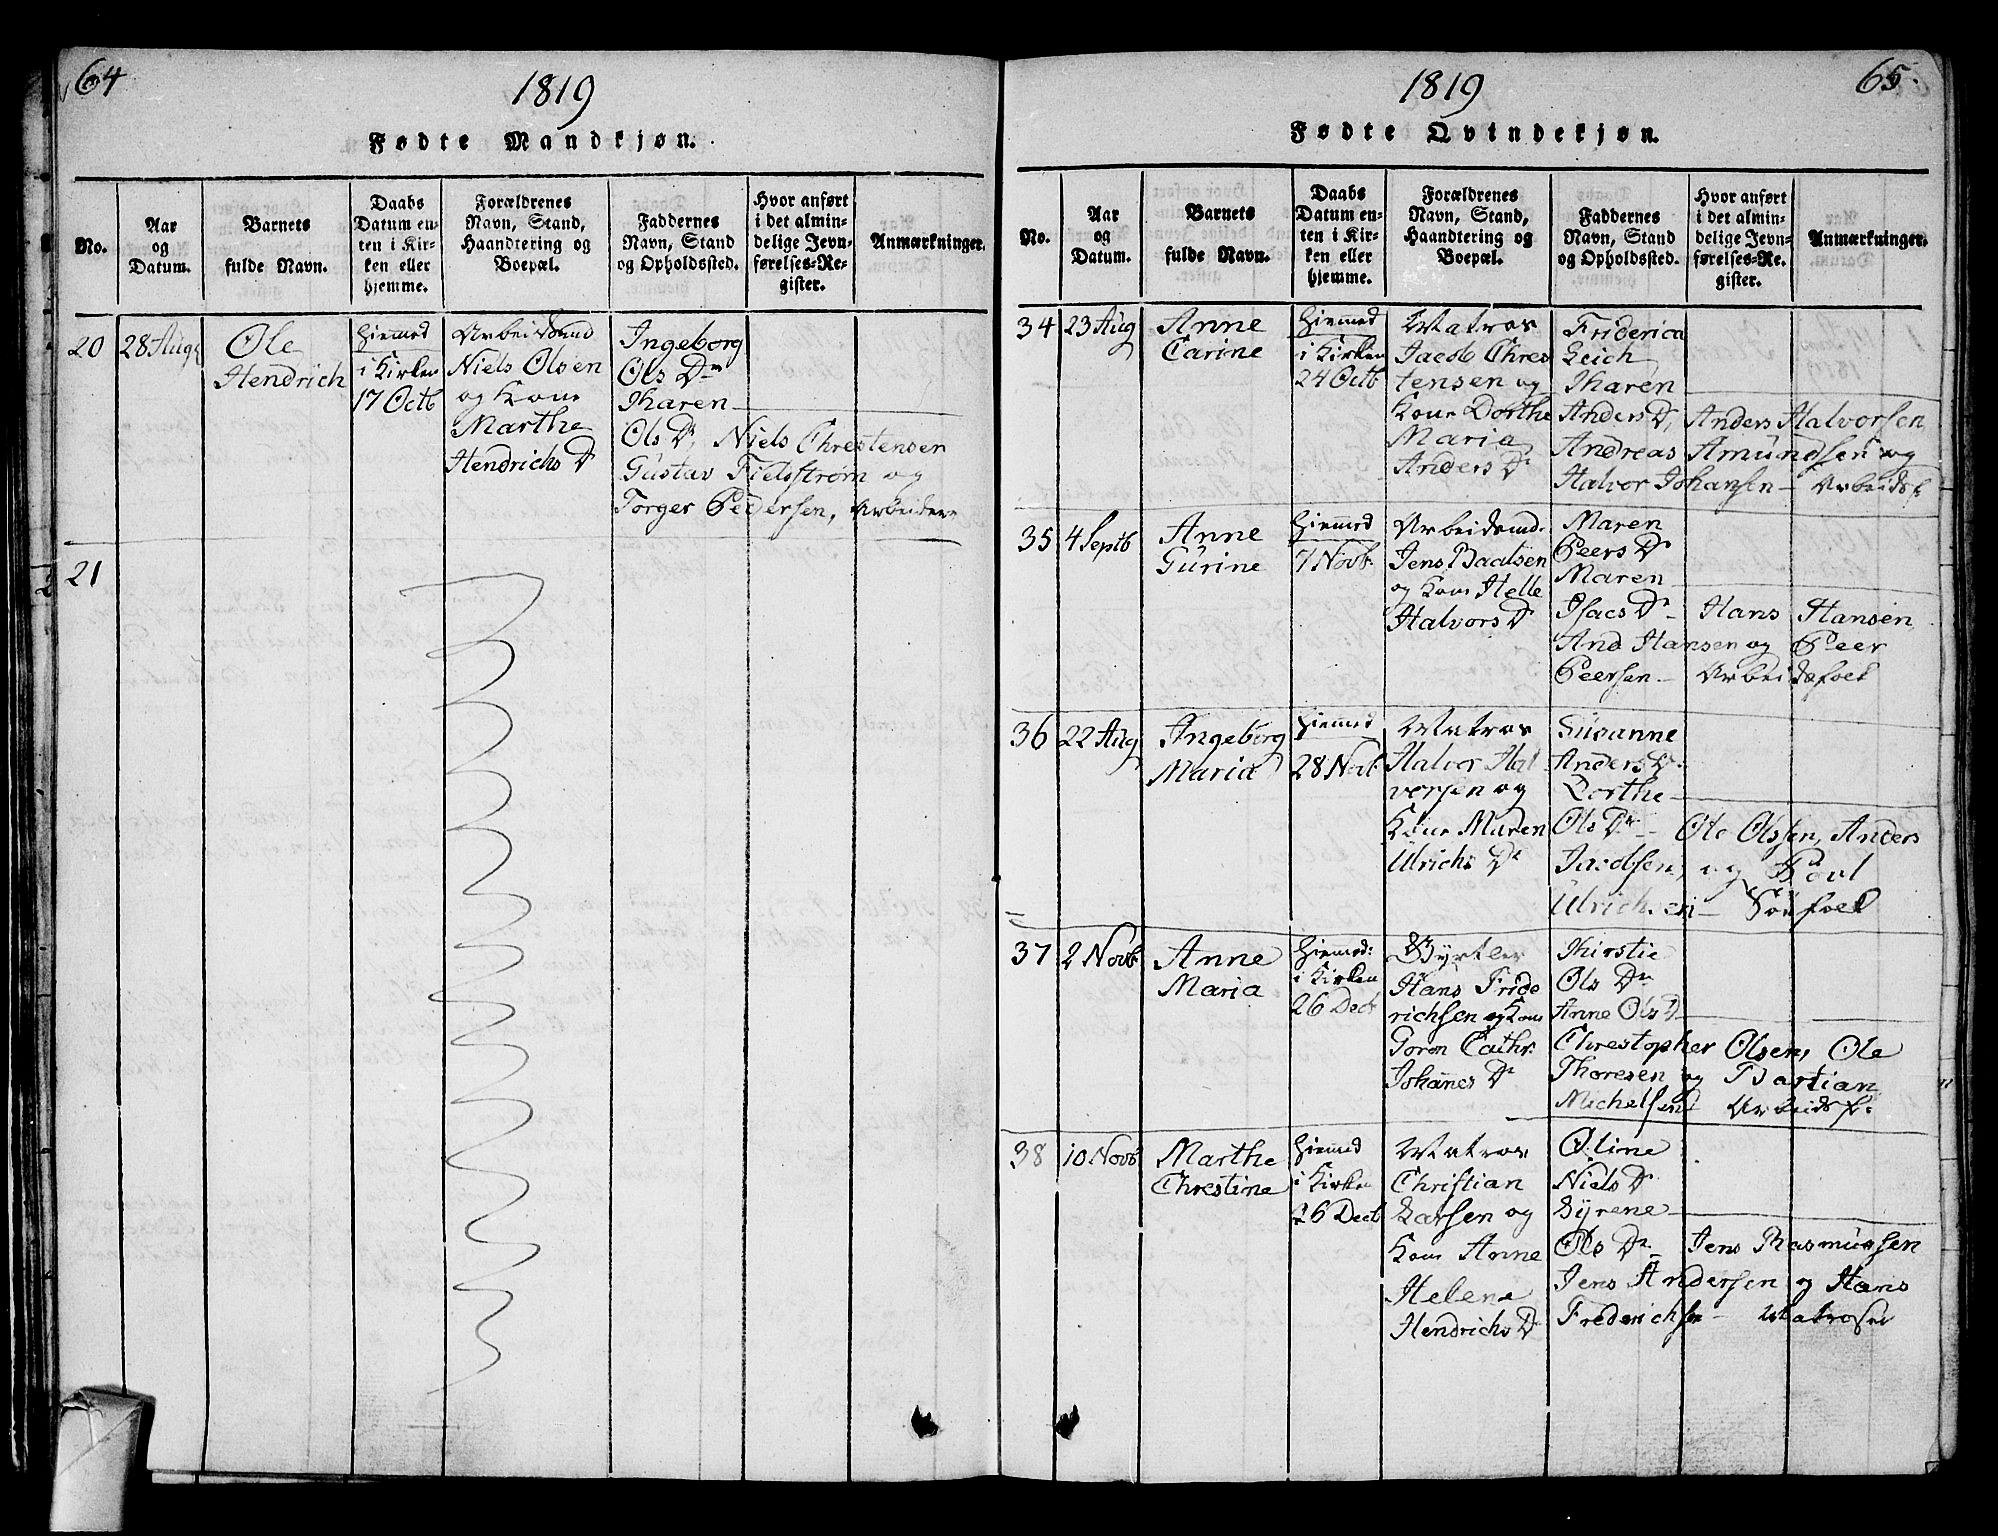 64
1819
Fødte Mandkjøn.
No.
Aar
og
Datum.
Barnets
fulde Navn.
Daabs
Datum en-
ten i Kir-
ken eller
hjemme.
Forældrenes
Navn, Stand,
Haandtering og
Boepæl.
Faddernes
Navn, Stand
og Opholdssted.
Hvor anført
i det almin-
delige Jevn-
førelses-Re-
gister.
Anmærkninger.
20
28 Aug
Ole
Hendrich
Hiemed
i Kirken
17 Octb
Arbeidsmd
Niels Olsen
og Kone
Marthe
Hendrichs Dr
Ingeborg
Ols Dr
Karen
Ols Dr, Niels Chrestensen
Gustav Fielstrøm og
Torger Pedersen, Arbeidere
21
1819
65.
Fødte Qvindekjøn.
No.
Aar
og
Datum.
Barnets
fulde Navn.
Daabs
Datum en-
ten i Kir-
ken eller
hjemme.
Forældrenes
Navn, Stand,
Haandtering og
Boepæl.
Faddernes
Navn, Stand
og Opholdssted.
Hvor anført
i det almin-
delige Jevn-
førelses-Re-
gister.
Anmærkninger.
34
23 Aug
Anne
Carine
Hiemed
i Kirken
24 Octb
Matros
Jacob Chres
tensen og
Kone Dorthe
Maria
Anders Dr
Friderica
Leich
Karen
Anders Dr, Anders Halvorsen
Andreas Amundsen og
Halvor Johansen – Arbeidsf.
35
4 Septb
Anne
Gurine
Hiemed
7 Novb.
Arbeidsmd.
Jens Baalsen
og Kone Helle
Halvors Dr
Maren
Peers Dr
Maren
Isacs Dr – Hans Hansen,
And Hansen og Peer
Peersen – Arbeidsfolk
36
22 Aug
Ingeborg
Maria
Hiemed
28 Novb
Matros
Halvor Hal
vorsen og
Kone Maren
Ulrichs Dr
Susanne
Anders Dr.
Dorthe
Ols Dr – Ole Olssen, Anders
Jacobsen, og Povl
Ulrichsen – Söefolk
37
2 Novb
Anne
Maria
Hiemed:
i Kirken
26 Decb
Gyrtler
Hans Fride
richsen og Kone
Goron Cathr.
Johanes Dr
Kirstie
Ols Dr
Anne Ols Dr
Chrestopher Olsen, Ole
Thoresen og Bastian
Michelsen Arbeidsf.
38
10 Novb
Marthe
Chrestine
Hiemed
i Kirken
26 Decb
Matros
Christian
Larsen og
Kone Anne
Helene
Hendrichs Dr
Oline
Niels Dr
Syrene
Ols Dr – Jens Rasmussen
Jens Andersen og Hans
Frederichsen – Matroser